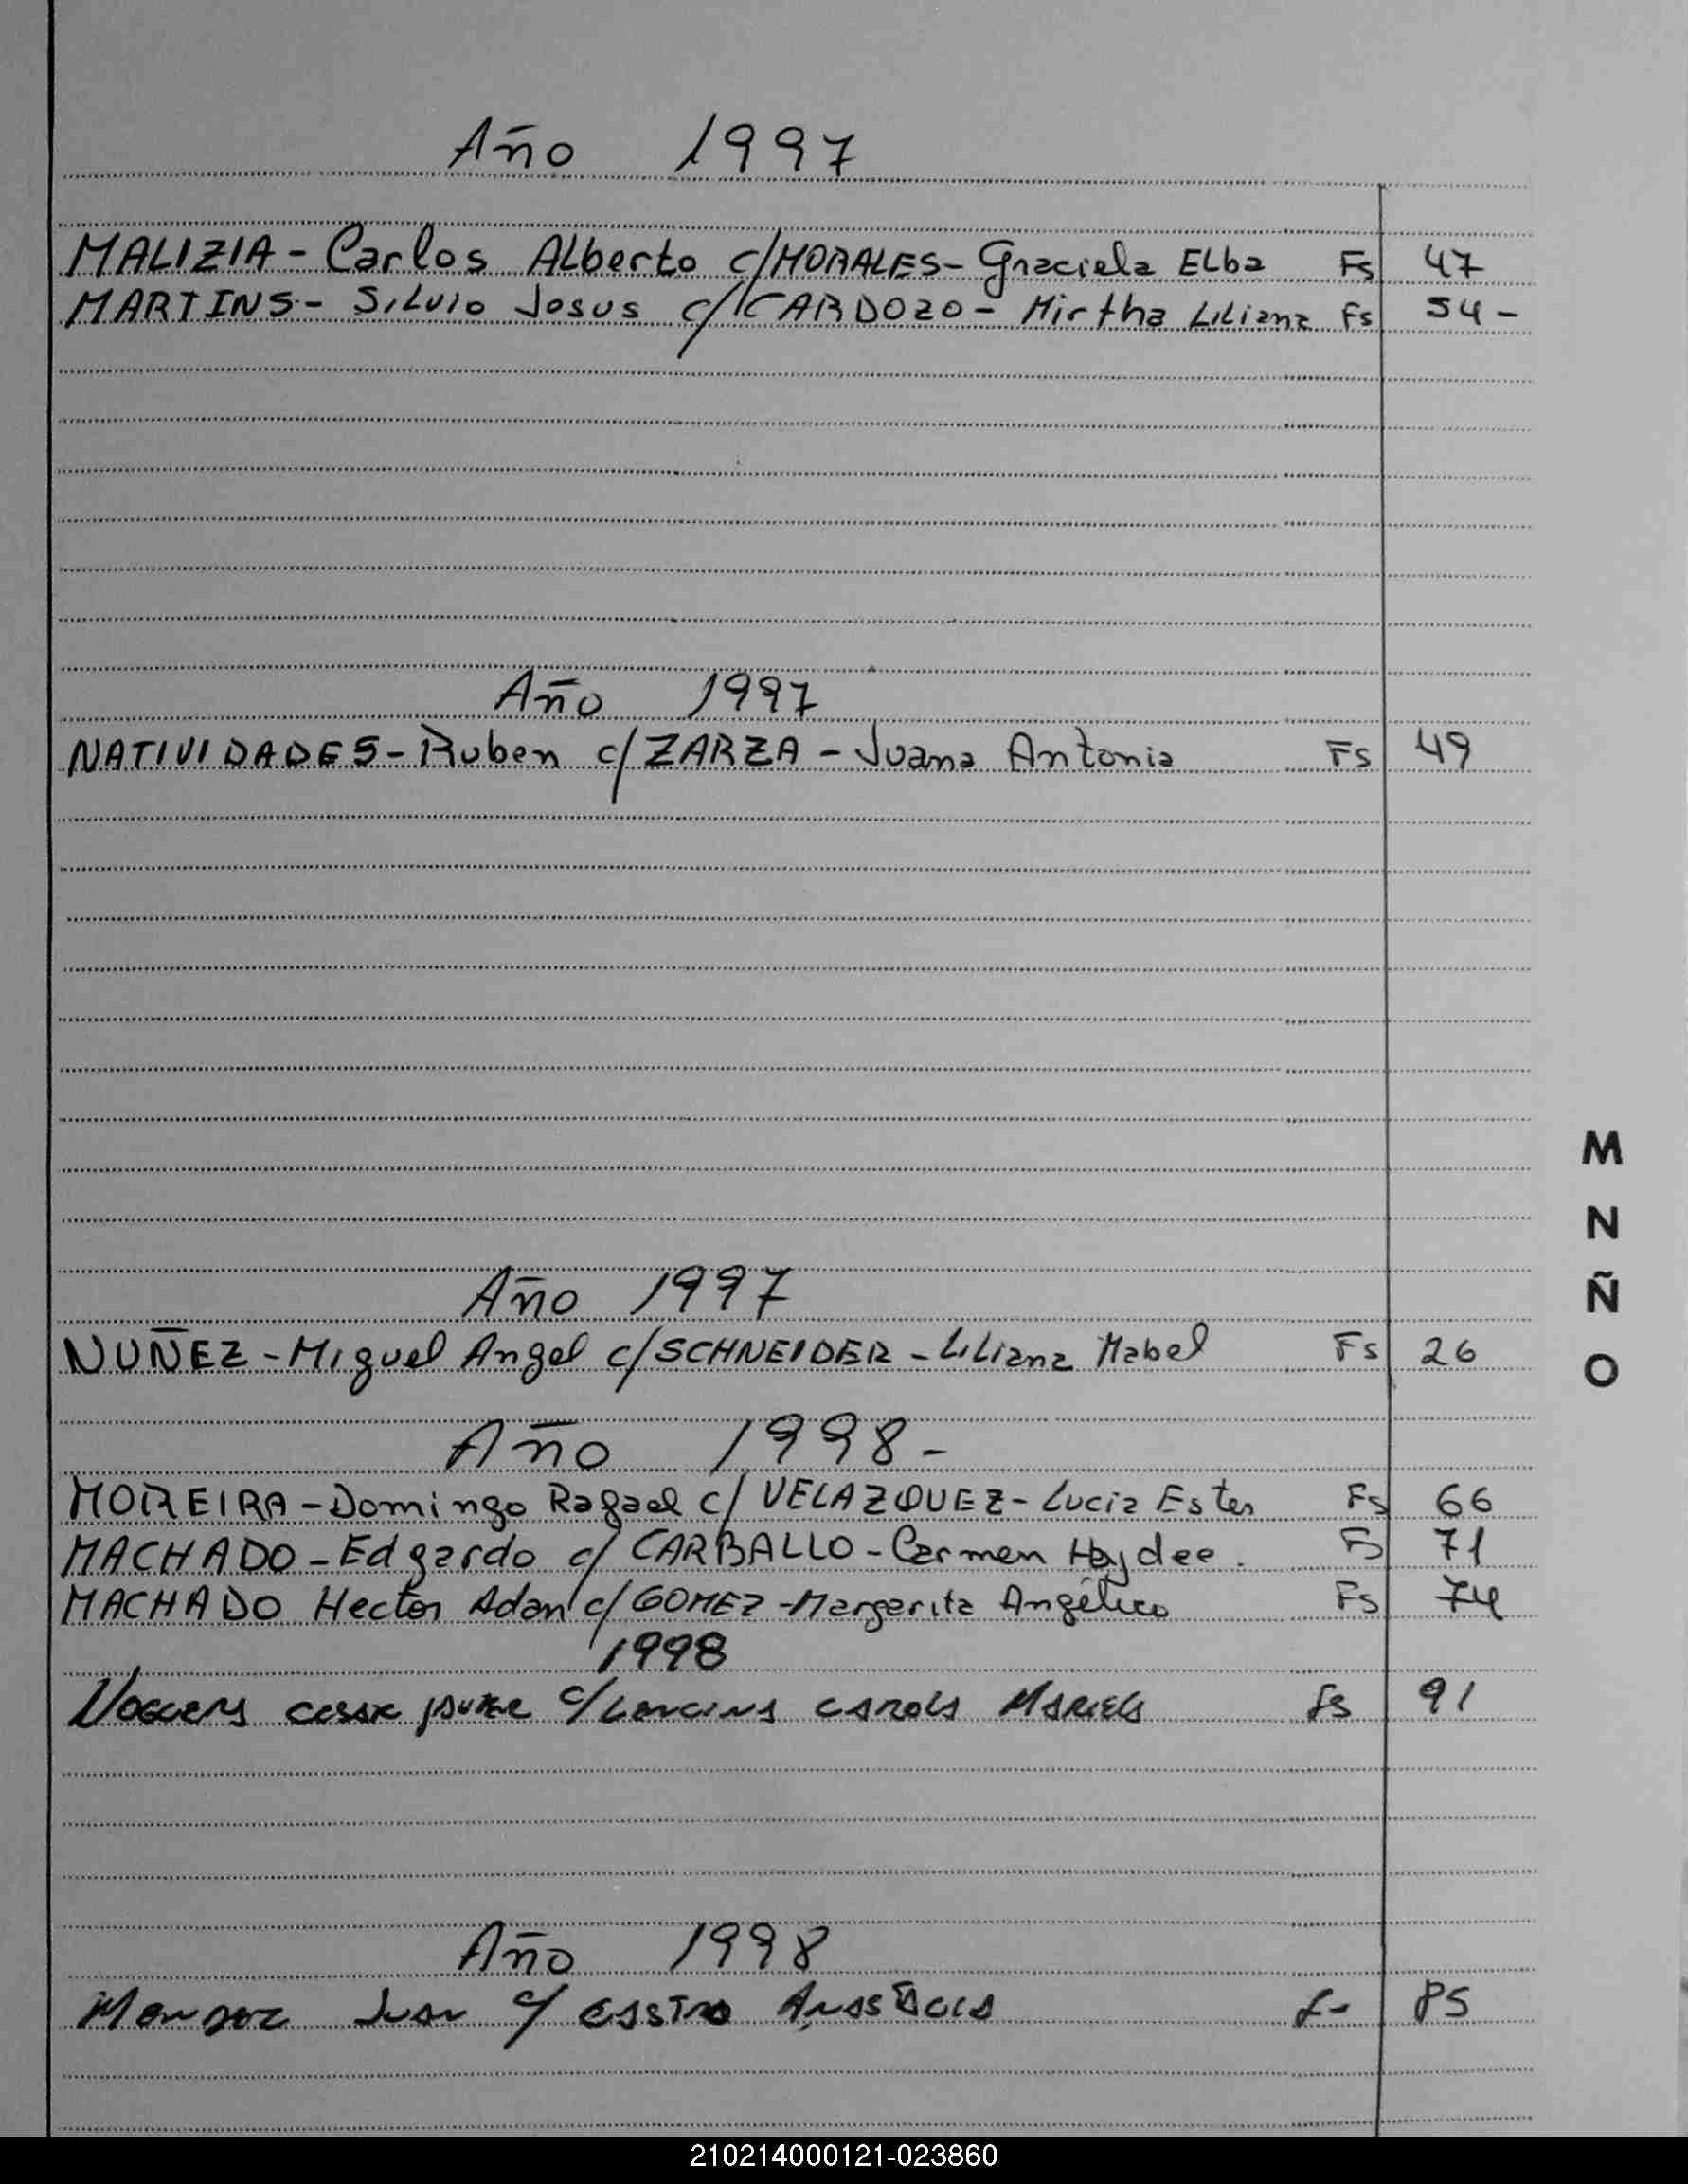 Año 1997
MALIZIA - Carlos Alberto c/MORALES - Graciela Elba Fs 47
MARTINS - Silvio Josus c/CARDOZO - Mirtha Liliana Fs 54 -
Año 1997
NATIVIDADES - Ruben c/ZARZA - Juana Antonia Fs 49
M
N
Ñ
O
Año 1997
NUÑEZ - Miguel Angel c/SCHNEIDER - Liliana Mabel Fs 26
Año 1998 -
MOREIRA - Domingo Rafael c/ VELAZQUEZ - Lucia Ester Fs 66
MACHADO - Edgardo c/ CARBALLO - Carmen Haydee. Fs 71
MACHADO Hector Adan c/ GOMEZ - Margarita Angélica Fs 74
1998
c/ Carola Mariela fs 91
Año 1998
Juan c/ Castro f- 85
210214000121-023860